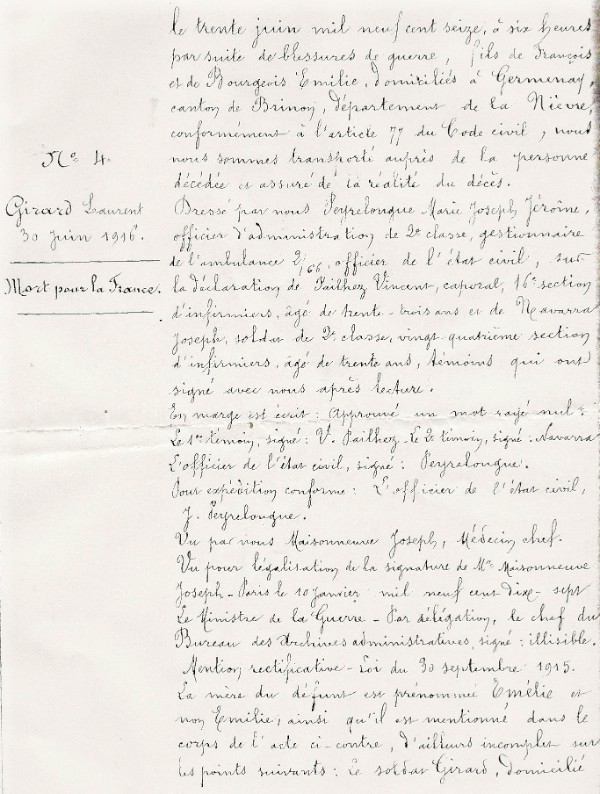 No 4.
Girard Laurent
30 Juin 1916.
Mort pour la France.
le trente juin mil neuf cent seize, à six heures
par suite de blessures de guerre, fils de François
et de Bourgeois Emilie, domiciliés à Germenay,
canton de Brinon, département de la Nièvre,
conformément à l'article 77 du Code civil, nous
nous sommes transporté auprès de la personne
décédée et assuré de la réalité du décès.
Dressé par nous Peyrelongue Marie Joseph Jérôme,
officier d'administration de 2e classe, gestionnaire
de l'ambulance 2/66, officier de l'état civil, sur
la déclaration de Pailhez Vincent, caporal, 16e section
d'infirmiers, âgé de trente-trois ans et de Navarra
Joseph, soldat de 2e classe, vingt-quatrième section
d'infirmiers, âgé de trente ans, témoins qui ont
signé avec nous après lecture.
En marge est écrit : Approuvé un mot rayé nul :
Le 1er témoin, signé : V. Pailhez - Le 2e témoin, signé : Navarra
L'officier de l'état civil, signé : Peyrelongue.
Pour expédition conforme : L'officier de l'état civil,
J. Peyrelongue.
Vu par nous Maisonneuve Joseph, Médecin chef.
Vu pour légalisation de la signature de Mr Maisonneuve
Joseph - Paris le 10 janvier mil neuf cent dix-sept
Le Ministre de la Guerre - Par délégation, le chef du
Bureau des Archives administratives, signé : illisible.
Mention rectificative - Loi du 30 septembre 1915.
La mère du défunt est prénommée Emélie et
non Emilie, ainsi qu'il est mentionné dans le
corps de l'acte ci-contre, d'ailleurs incomplet sur
les points suivants : Le soldat Girard, domicilié